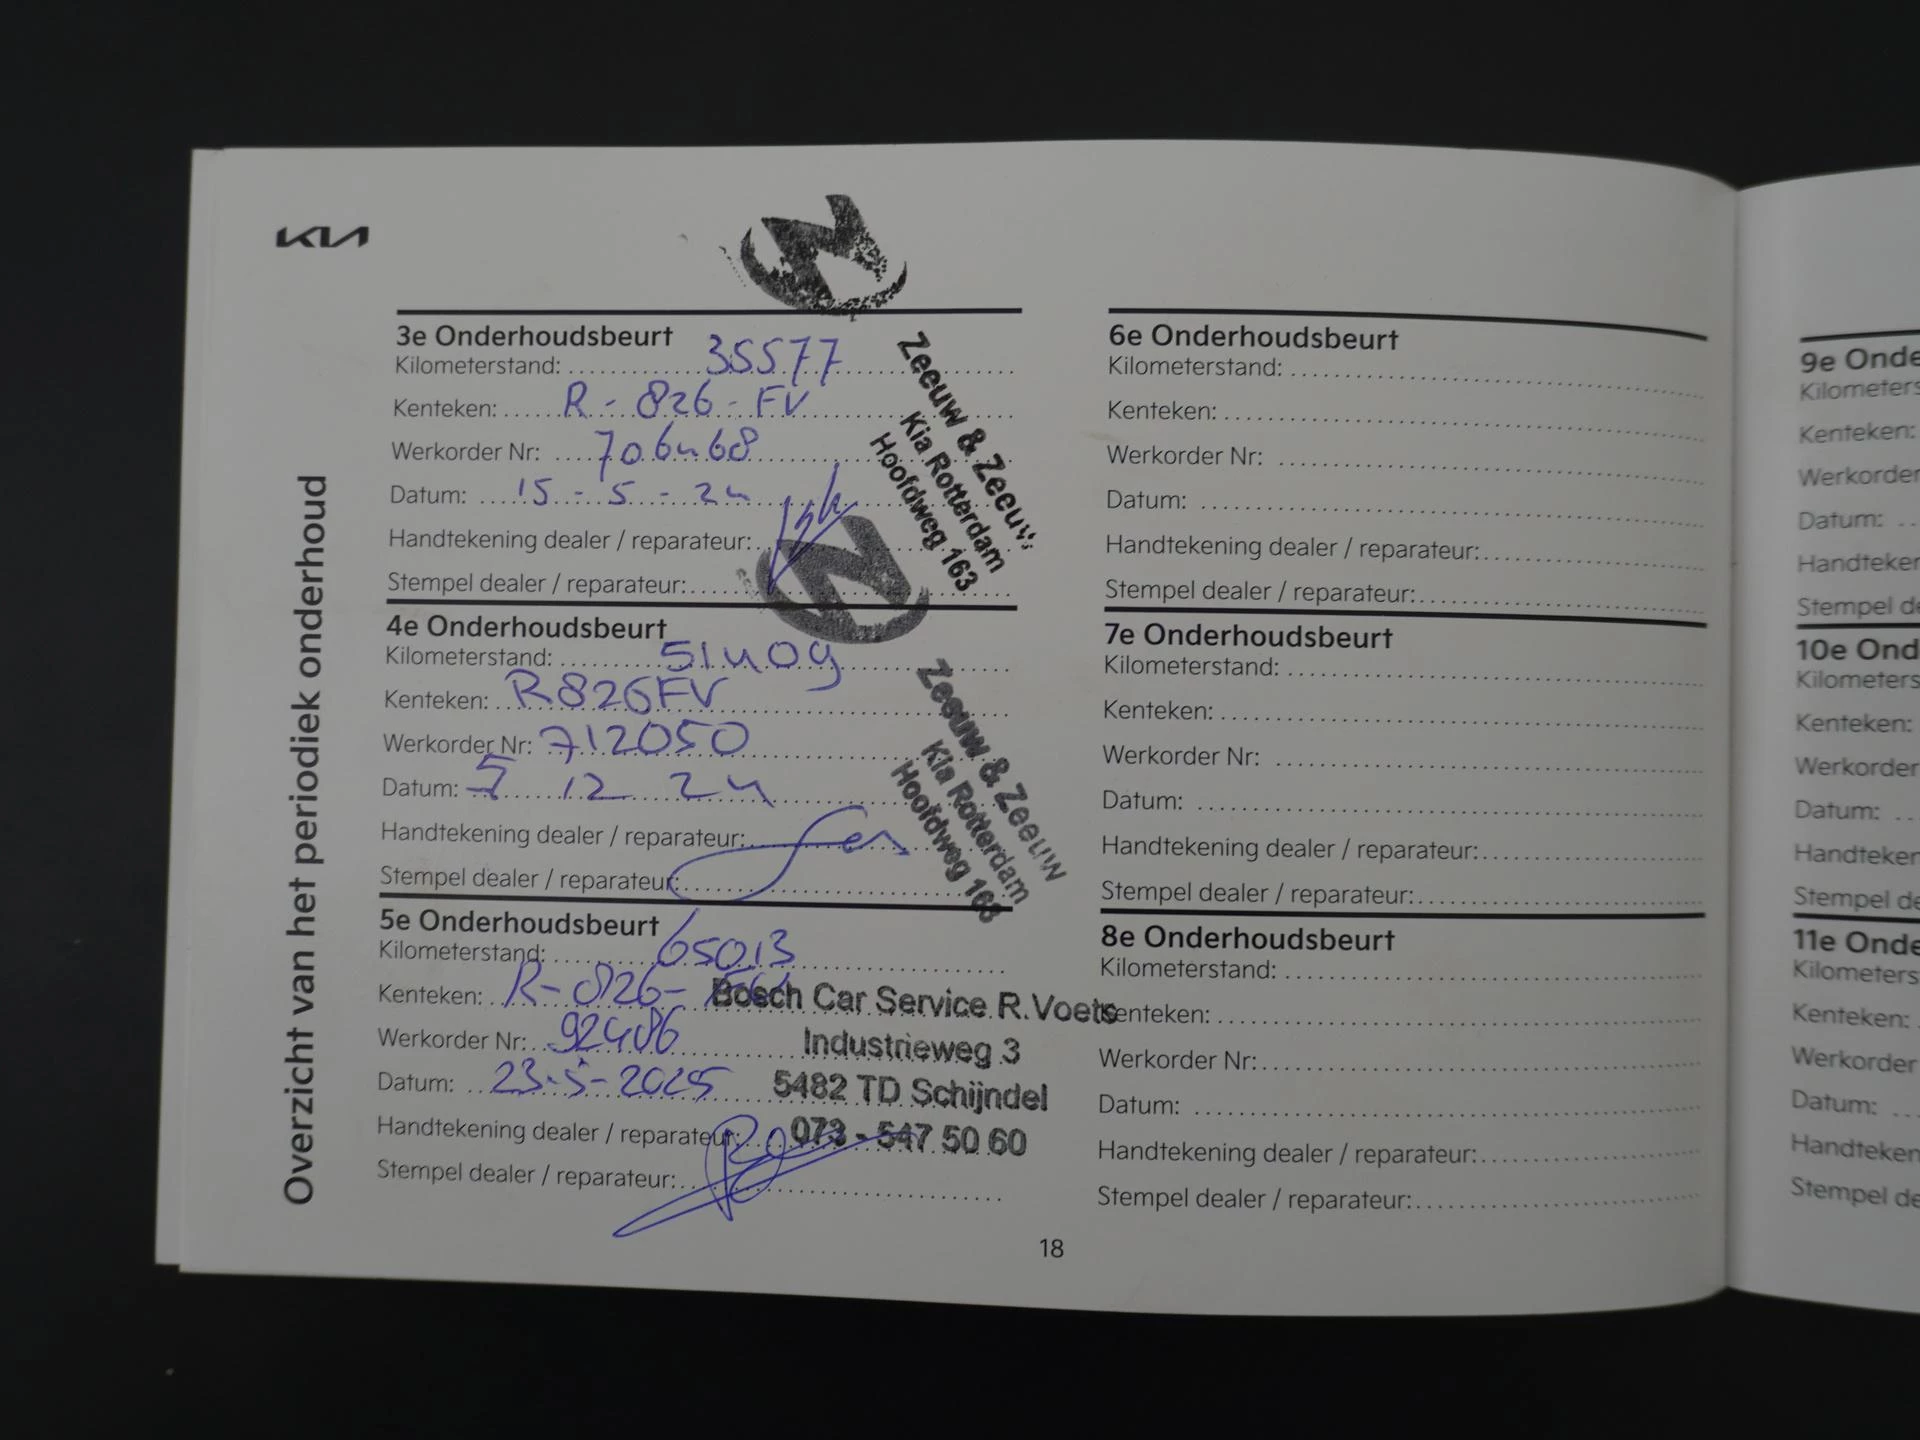 KIA
Overzicht van het periodiek onderhoud
3e Onderhoudsbeurt
Kilometerstand: 35577
Kenteken: R-826-FV
Werkorder Nr: 706468
Datum: 15-5-24
Handtekening dealer / reparateur:
Stempel dealer / reparateur:
Zeeuw & Zeeuw
Kia Rotterdam
Hoofdweg 163
4e Onderhoudsbeurt
Kilometerstand: 51409
Kenteken: R826FV
Werkorder Nr: 712050
Datum: 5 12 24
Handtekening dealer / reparateur:
Stempel dealer / reparateur:
Zeeuw & Zeeuw
Kia Rotterdam
Hoofdweg 163
5e Onderhoudsbeurt
Kilometerstand: 65013
Kenteken: R-826-
Werkorder Nr: 92486
Datum: 23-5-2025
Handtekening dealer / reparateur:
Stempel dealer / reparateur:
Bosch Car Service R.Voets
Industrieweg 3
5482 TD Schijndel
073 - 547 50 60
6e Onderhoudsbeurt
Kilometerstand:
Kenteken:
Werkorder Nr:
Datum:
Handtekening dealer / reparateur:
Stempel dealer / reparateur:
7e Onderhoudsbeurt
Kilometerstand:
Kenteken:
Werkorder Nr:
Datum:
Handtekening dealer / reparateur:
Stempel dealer / reparateur:
8e Onderhoudsbeurt
Kilometerstand:
Kenteken:
Werkorder Nr:
Datum:
Handtekening dealer / reparateur:
Stempel dealer / reparateur:
18
9e Onde
Kilometers
Kenteken:
Werkorder
Datum:
Handteken
Stempel de
10e Ond
Kilometers
Kenteken:
Werkorder
Datum:
Handteken
Stempel de
11e Onde
Kilometers
Kenteken:
Werkorder
Datum:
Handteken
Stempel de